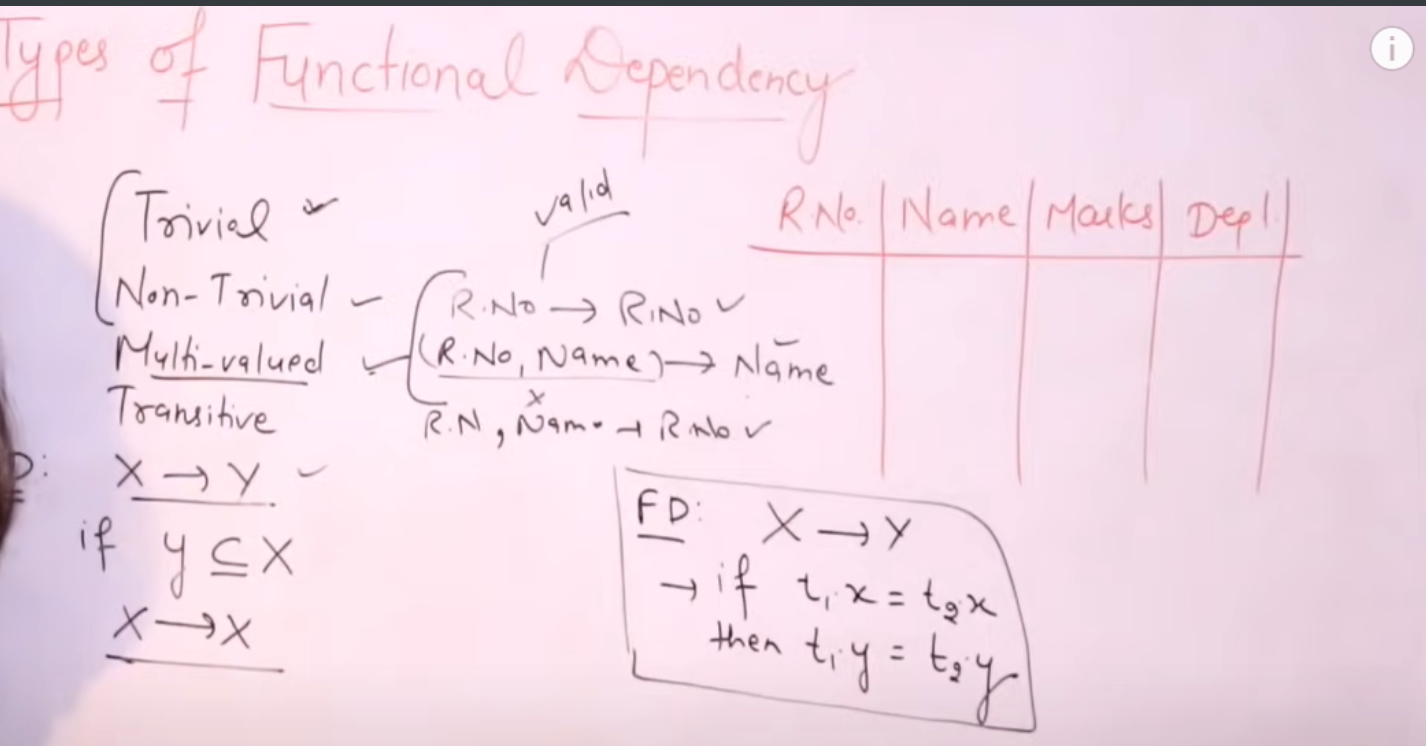 Types of Functional Dependency
Trivial ✓
Non-Trivial ✓
Multi-valued ✓
Transitive
D: X → Y ✓
if y ⊆ X
X → X
valid
R.No → R.No ✓
(R.No, Name) → Name
x
R.N, Name → R.No ✓
R.No. | Name | Marks | Dept.
FD: X → Y
→ if t₁.x = t₂.x
then t₁.y = t₂.y
i